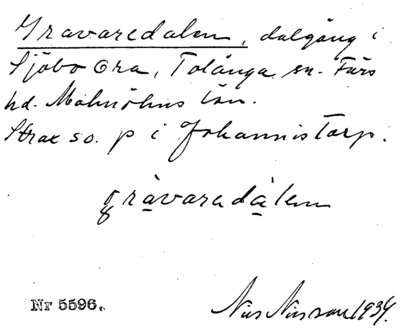 Gravaredalen, dalgång i
Sjöbo Ora, Tolånga sn. Färs
hd. Malmöhus län.
Strax so. p i Johannistorp.
gràvaredàlen
Nr 5596.
Nils Nilsson 1934.